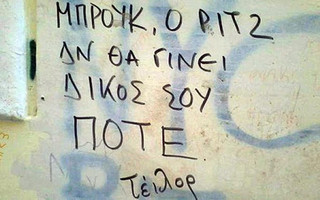 ΜΠΡΟΥΚ, Ο ΡΙΤΖ
ΔΝ ΘΑ ΓΙΝΕΙ
ΔΙΚΟΣ ΣΟΥ
ΠΟΤΕ
τέιλορ